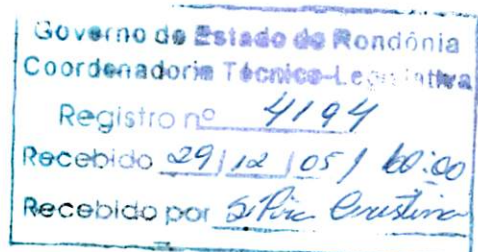 Governo do Estado de Rondônia
Coordenadoria Técnico-Legislativa
Registro nº 4194
Recebido 29/12/05/ :00
Recebido por Cristina